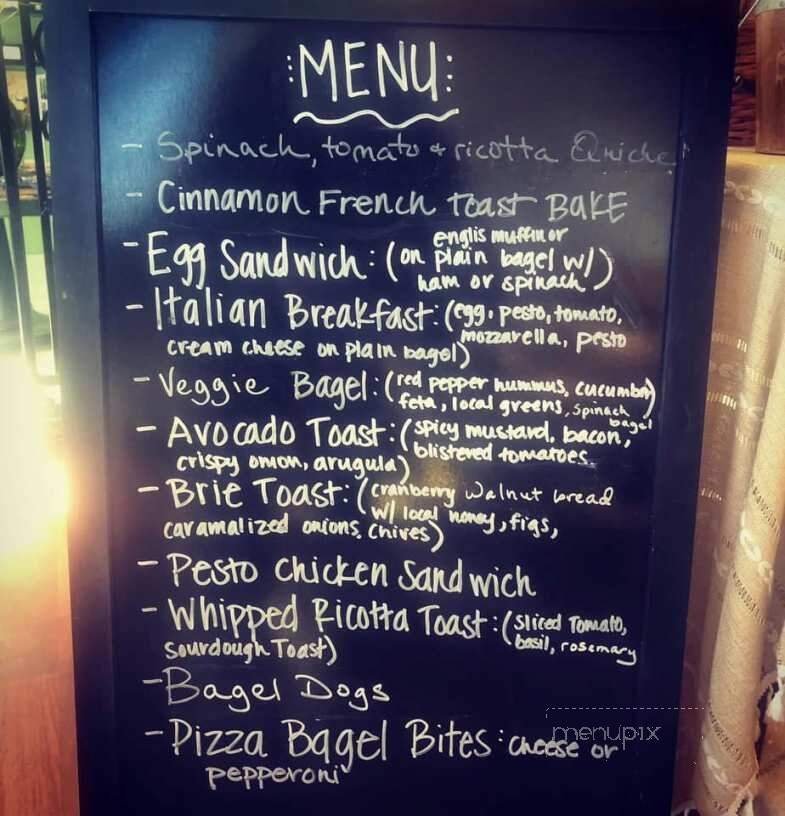 :MENU:
- Spinach, tomato + ricotta Quiche
- Cinnamon French Toast BAKE
englis muffin or
- Egg Sandwich: (on plain bagel w/)
ham or spinach
- Italian Breakfast: (egg, pesto, tomato,
mozzarella, pesto
cream cheese on plain bagel)
- Veggie Bagel: (red pepper hummus, cucumber)
feta, local greens, spinach
bagel
- Avocado Toast: (spicy mustard, bacon,
blistered tomatoes.
crispy onion, arugula)
- Brie Toast: (cranberry walnut bread
w/ local honey, figs,
caramalized onions, chives)
- Pesto chicken Sandwich
- Whipped Ricotta Toast: (sliced Tomato,
basil, rosemary
sourdough Toast)
- Bagel Dogs
- Pizza Bagel Bites: cheese or
pepperoni
menupix